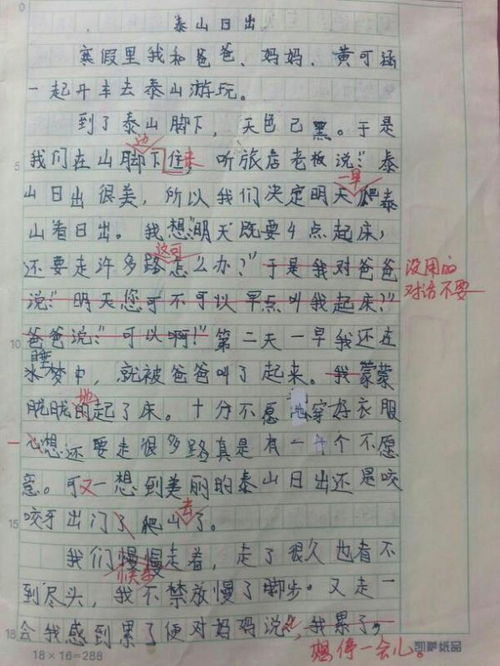 泰山日出
寒假里我和爸爸、妈妈、黄可涵
一起开车去泰山游玩。
到了泰山脚下，天色已黑。于是
边
5 我们在山脚下住来，听旅店老板说："泰
一早
山日出很美，所以我们决定明天爬泰
山看日出。我想"明天既要4点起床，
这可
还要走许多路怎么办？"于是我对爸爸
没用的
说："明天您可不可以早点叫我起床？"
对话不要
10 爸爸说："可以啊！"第二天一早我还在
睡
梦中，就被爸爸叫了起来。我蒙蒙
地
胧胧的起了床。十分不愿 穿好衣服
心想还要走很多路真是有一个不愿
意。可又一想到美丽的泰山日出还是咬
去
15 咬牙出门了爬山了。
我们慢慢走着，走了很久也看不
到尽头，我不禁放慢了脚步。又走一
18 会我感到累了便对妈妈说，我累了，
想停一会儿。
18×16=288
凯萨纸品